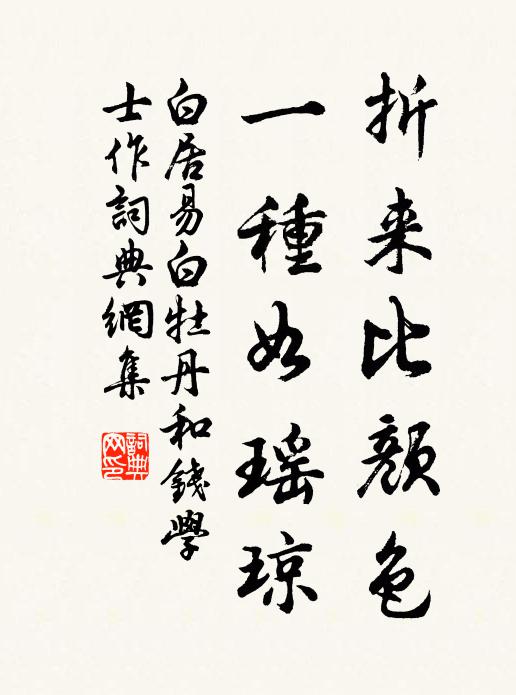 折来比颜色
一種如瑶琼
白居易白牡丹和錢學
士作詞典網集
詞典网印